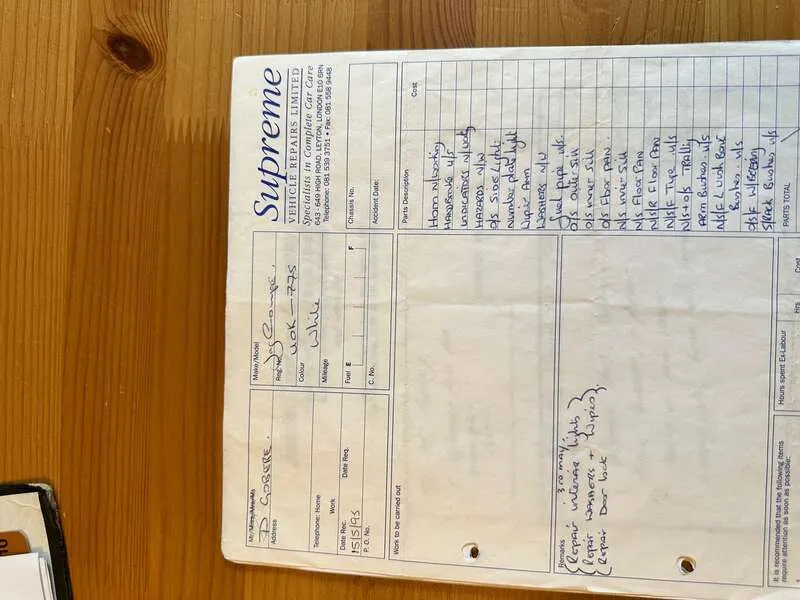 Supreme
VEHICLE REPAIRS LIMITED
Specialists in Complete Car Care
643 - 649 HIGH ROAD, LEYTON, LONDON E10 6RN
Telephone: 081 539 3751 • Fax: 081 558 9448
Mr/Mrs/Miss/Ms
D GOBERE.
Address
Telephone: Home
Work
Date Rec. Date Req.
15/5/95
P. O. No.
Make/Model
Reg. No.
UOK-775
Colour
White
Mileage
Fuel E F
C. No.
Chassis No.
Accident Date:
Work to be carried out
Parts Description Cost
Horn N/working
HANDBRAKE U/S
INDICATORS N/working
HAZARDS N/W
O/S SIDE Light.
Number plate light
Wiper Arm
WASHERS N/W
fuel pipe u/s.
O/S outer sill
O/S inner sill
O/S Floor PAN.
N/S inner sill
N/S Floor PAN
N/S/R Floor PAN
N/S/F Tyre u/s
N/S+O/S TRAILING
ARM Bushes u/s
N/S/F L WISH Bone
Bushes u/s
O/S/F W/BEARING
S/Rack Bushes u/s
PARTS TOTAL
Remarks 3RD MAY.
Repair interior lights
Repair WASHERS + Wipers
Repair Door lock
It is recommended that the following items
require attention as soon as possible:
Hours spent Ex-Labour Hrs Cost